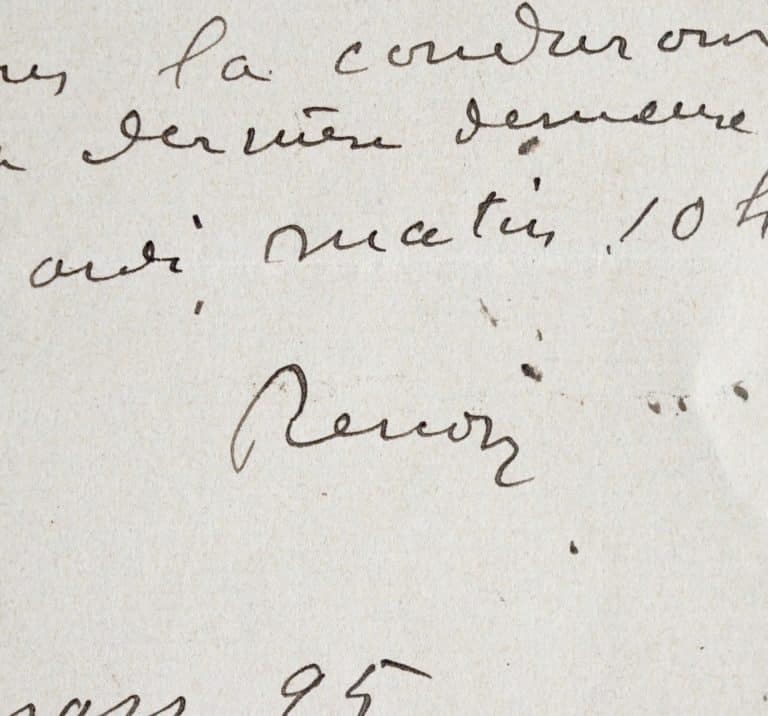 la conduirons
dernière demeure
ardi matin 10 h
Renoir
mars 95